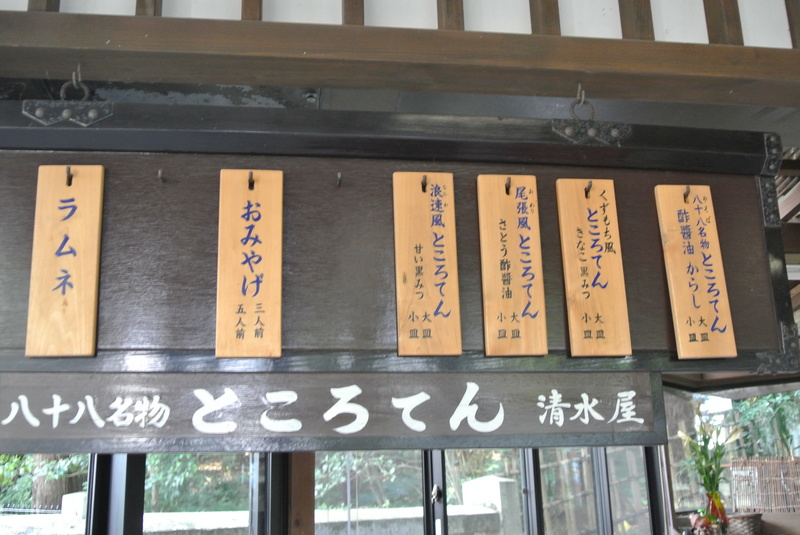 八十八名物 ところてん
酢醤油 からし
大皿
小皿
くずもち風
ところてん
きなこ 黒みつ
大皿
小皿
尾張風 ところてん
さとう酢醤油
大皿
小皿
浪速風 ところてん
甘い黒みつ
大皿
小皿
おみやげ
三人前
五人前
ラムネ
八十八名物 ところてん 清水屋